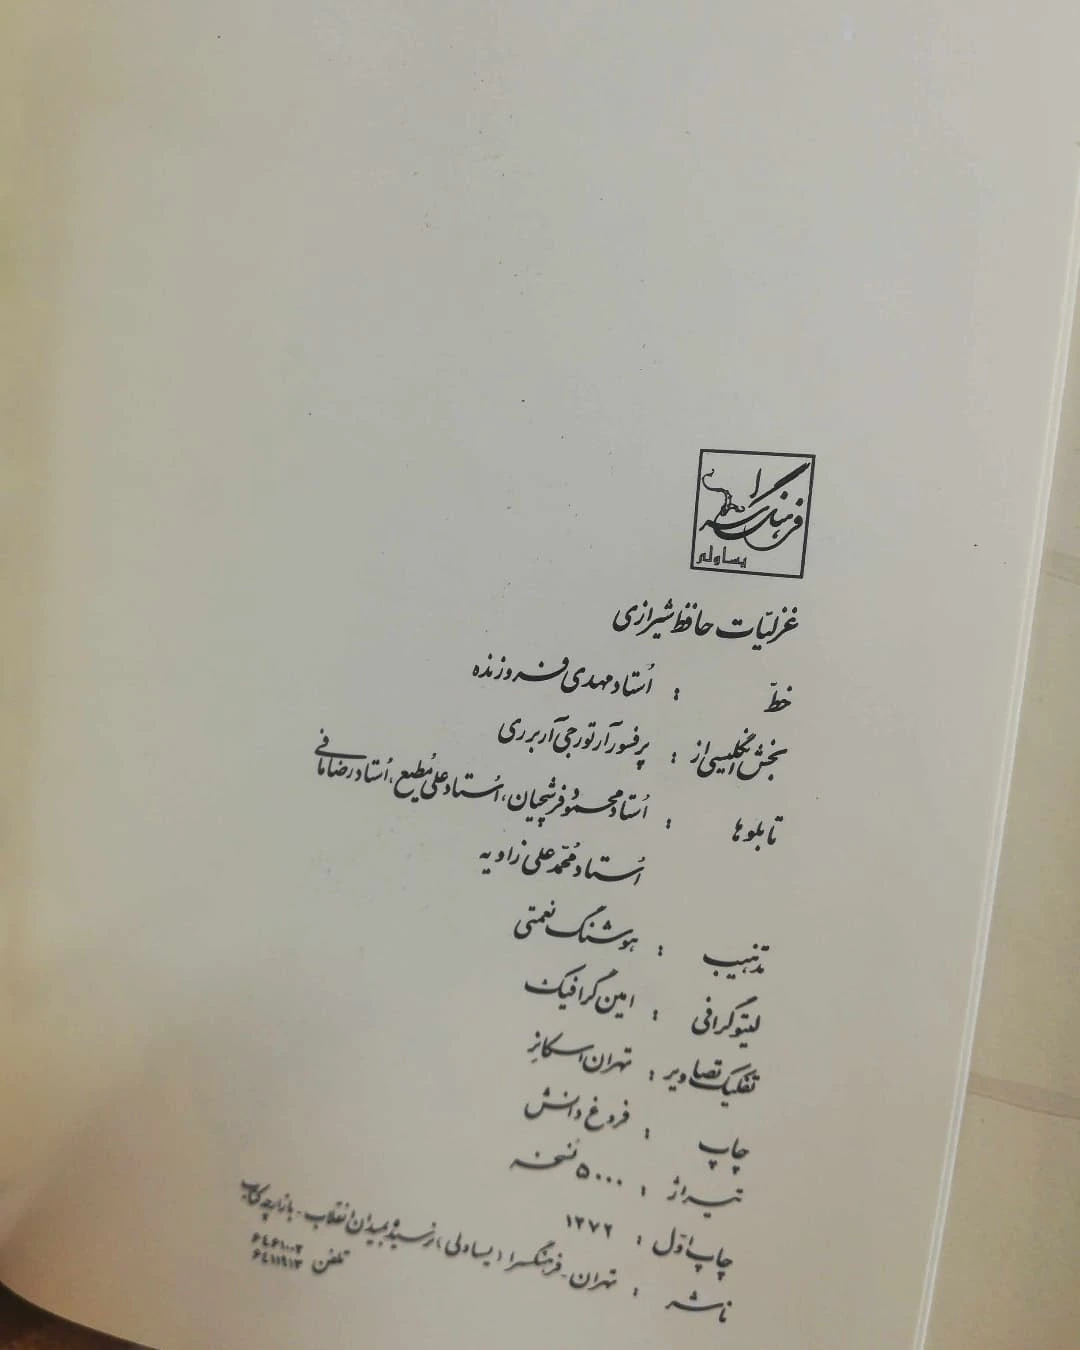 فرهنگسرا
یساولی
غزلیّات حافظ شیرازی
خطّ : اُستاد مهدی فروزنده
بخش انگلیسی از : پرفسور آرتور جی آربری
تابلوها : اُستاد محمود فرشچیان، اُستاد علی مُطیع، اُستاد رضا مافی
اُستاد مُحمّد علی زاویه
تذهیب : هوشنگ نعمتی
لیتوگرافی : امین گرافیک
تفکیک تصاویر : تهران اسکانر
چاپ : فروغ دانش
تیراژ : ۵۰۰۰ نُسخه
چاپ اوّل : ۱۳۷۲
ناشر : تهران - فرهنگسرا (یساولی)، نرسیده بمیدان انقلاب - بازارچه کتاب
تلفن ۶۴۶۱۰۰۳
۶۴۱۱۹۱۳